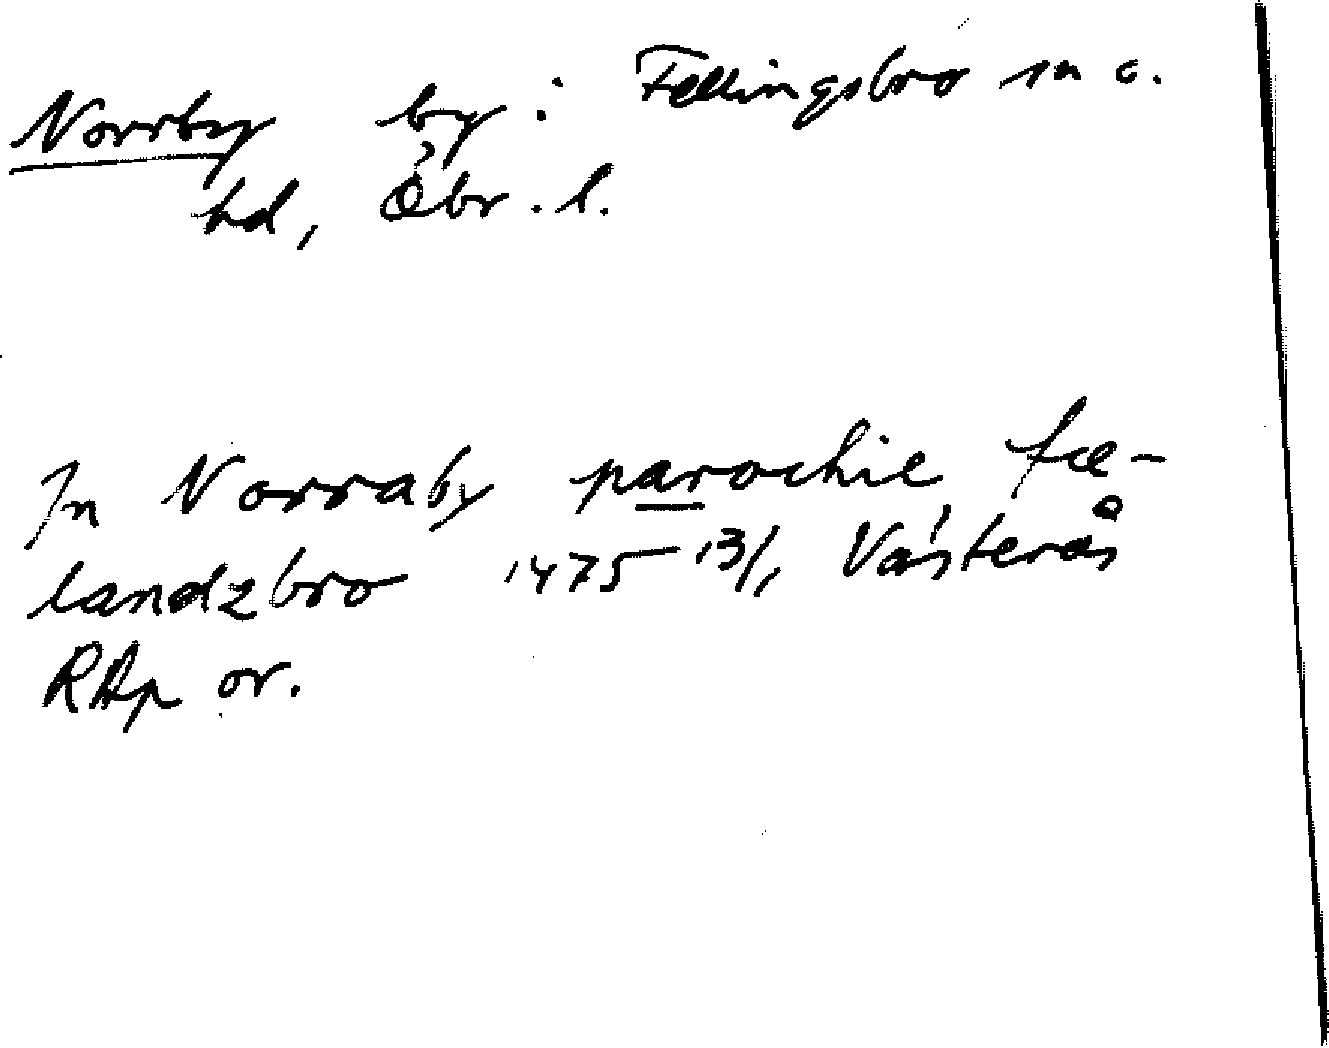 Norrby by i Fellingsbro sn o.
hd, Öbr. l.
In Norraby parochie fæ-
landzbro 1475 13/1 Västerås
RAp or.